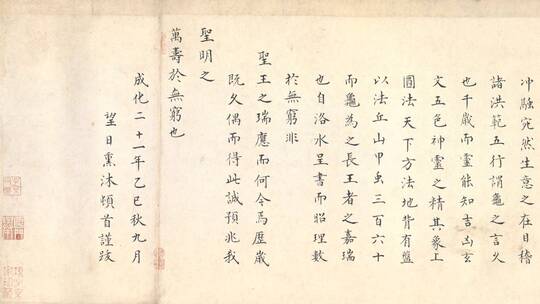 沖融宛然生意之在目稽
諸洪範五行謂龜之言久
也千歲而靈能知吉凶玄
文五色神靈之精其象上
圓法天下方法地背有盤
以法丘山甲虫三百六十
而龜為之長王者之嘉瑞
也自洛水呈書而昭理數
於無窮非
聖王之瑞應而何今焉歷歲
既久偶而得此誠預兆我
聖明之
萬壽於無窮也
成化二十一年乙巳秋九月
望日熏沐頓首謹跋